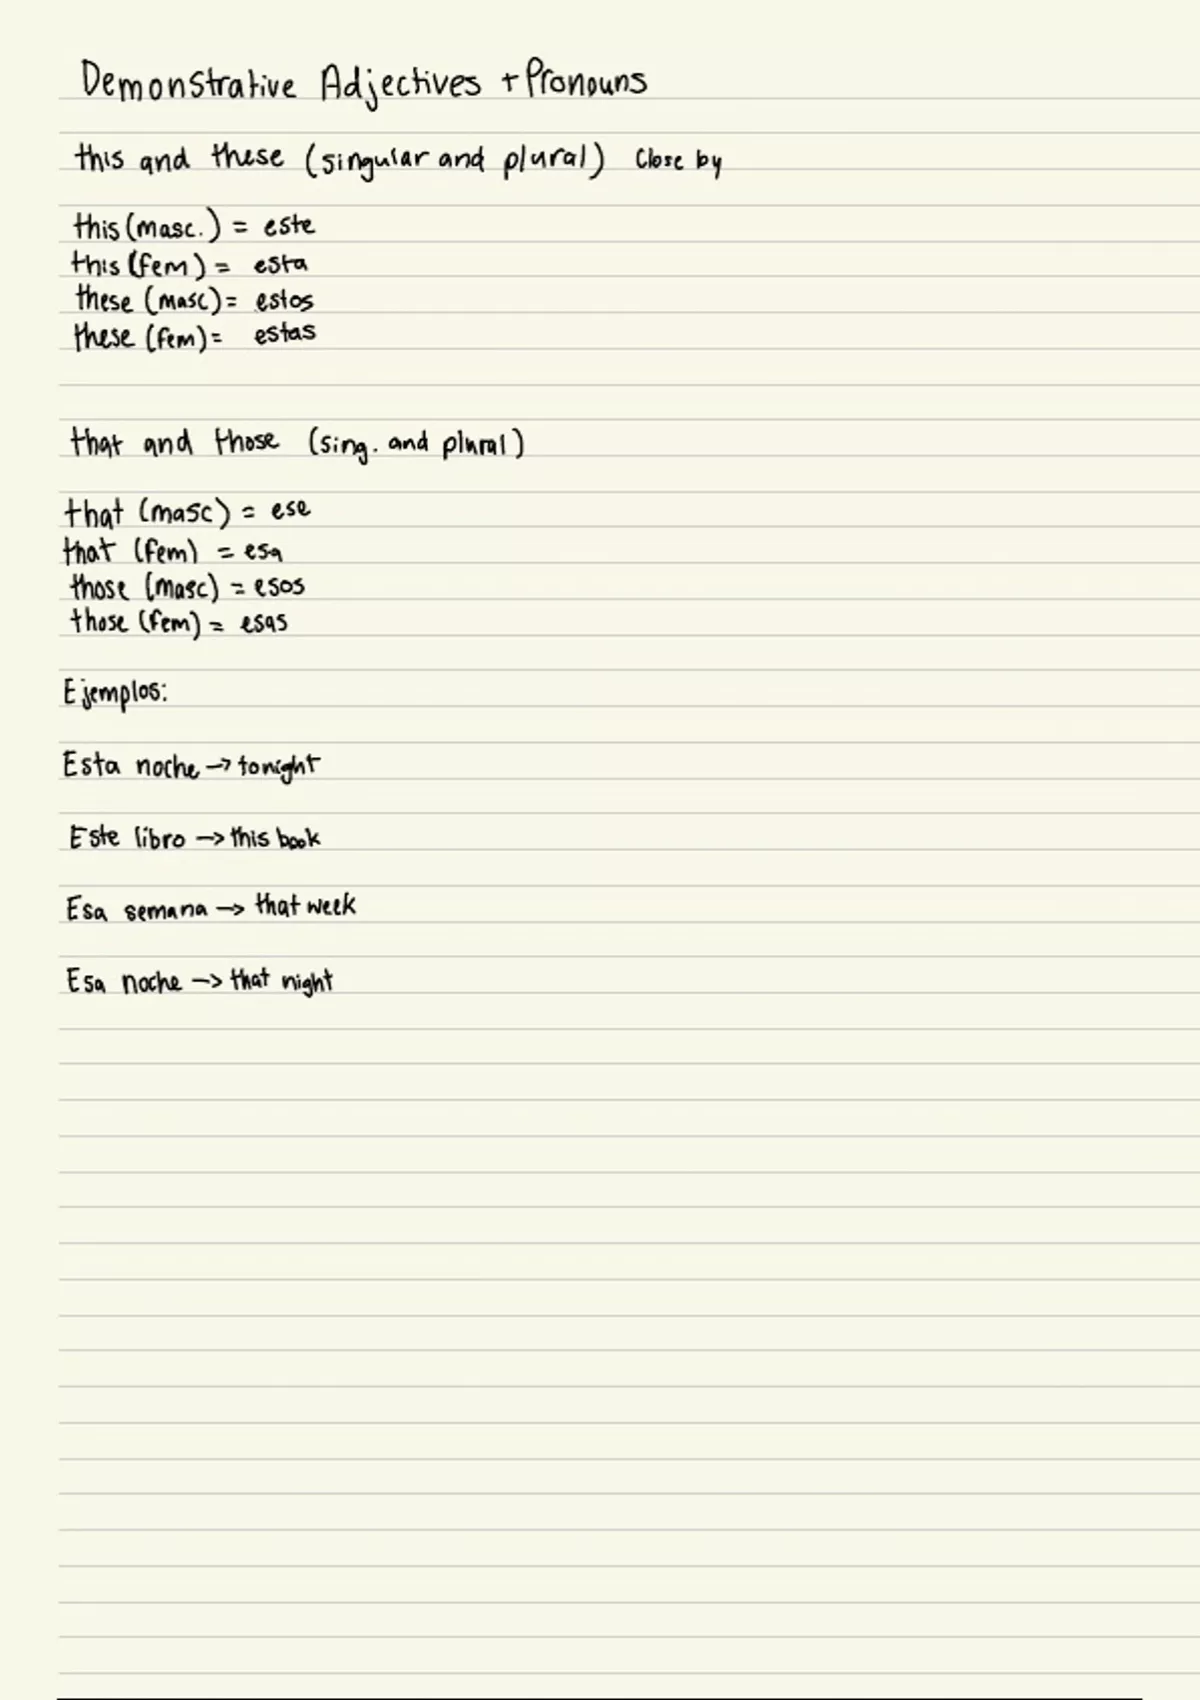 Demonstrative Adjectives + Pronouns
this and these (singular and plural) Close by
this (masc.) = este
this (fem) = esta
these (masc) = estos
these (fem) = estas
that and those (sing. and plural)
that (masc) = ese
that (fem) = esa
those (masc) = esos
those (fem) = esas
Ejemplos:
Esta noche -> tonight
Este libro -> this book
Esa semana -> that week
Esa noche -> that night